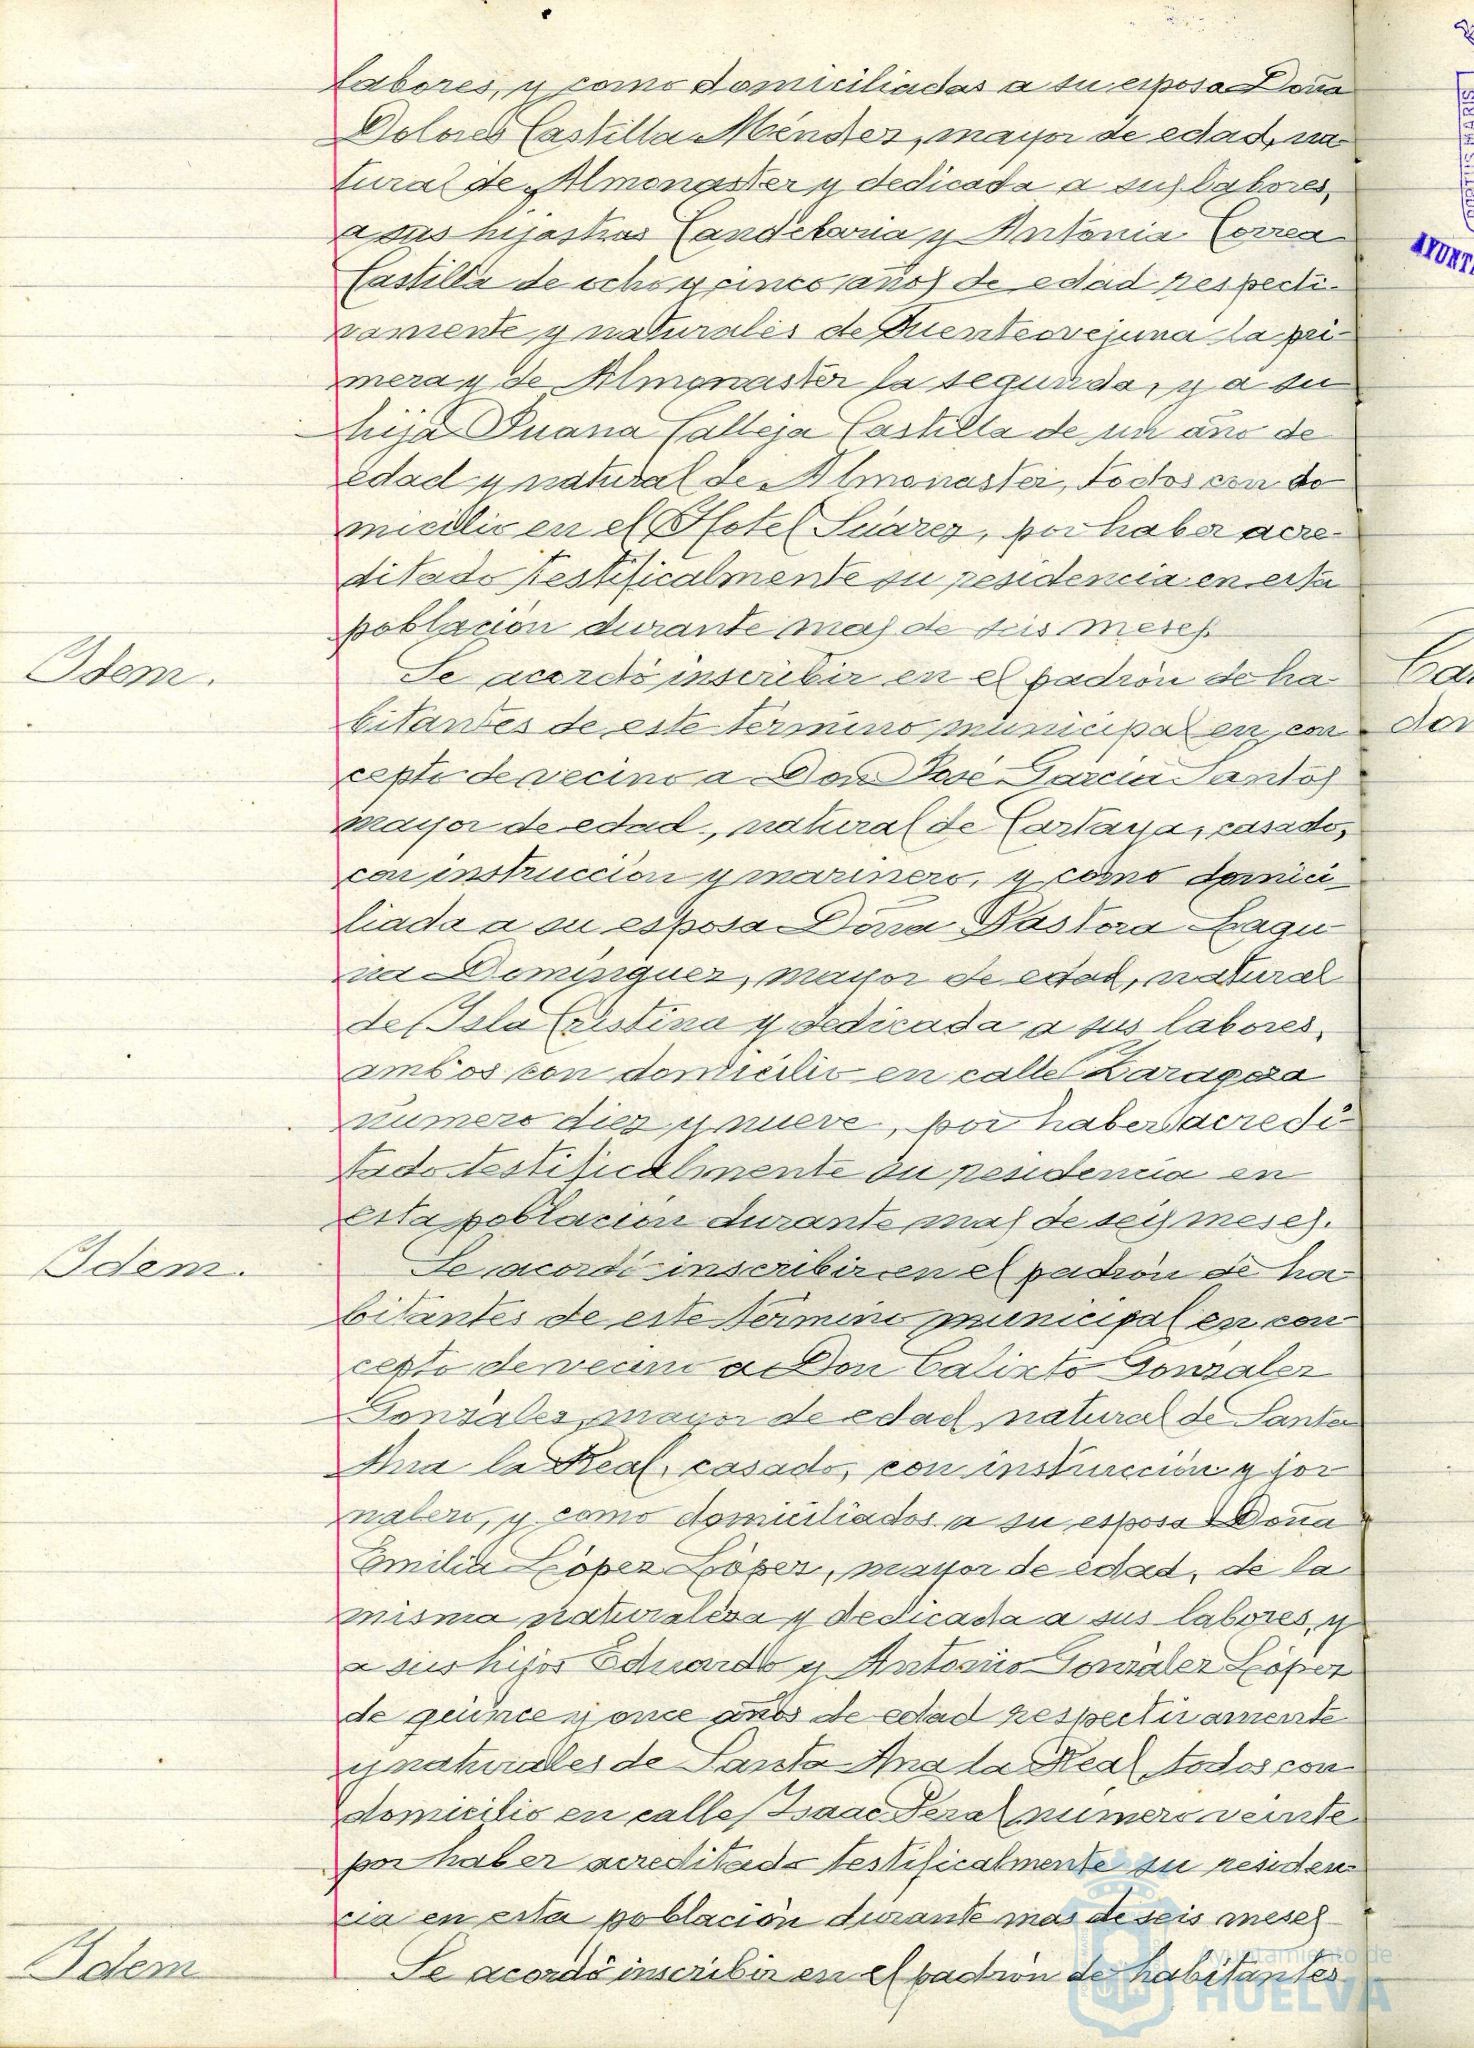 labores, y como domiciliadas a su esposa Doña
Dolores Castilla Méndez, mayor de edad, na
tural de Almonaster y dedicada a sus labores,
a sus hijastras Candelaria y Antonia Correa
Castilla de ocho y cinco años de edad respecti-
vamente y naturales de Fuenteovejuna la pri-
mera y de Almonaster la segunda, y a su
hija Juana Calleja Castilla de un año de
edad y natural de Almonaster, todos con do
micilio en el Hotel Suárez, por haber acre-
ditado testificalmente su residencia en esta
población durante mas de seis meses.
Idem.
Se acordó inscribir en el padrón de ha-
bitantes de este término municipal en con
cepto de vecino a Don José García Santos
mayor de edad, natural de Cartaya, casado,
con instrucción y marinero, y como domici-
liada a su esposa Doña Pastora Lagu
na Dominguez, mayor de edad, natural
de Isla Cristina y dedicada a sus labores,
ambos con domicilio en calle Zaragoza
número diez y nueve, por haber acredi-
tado testificalmente su residencia en
esta población durante mas de seis meses.
Idem.
Se acordó inscribir en el padrón de ha-
bitantes de este término municipal en con
cepto de vecino a Don Calixto González
González, mayor de edad, natural de Santa
Ana la Real, casado, con instrucción y jor
nalero, y como domiciliados a su esposa Doña
Emilia López López, mayor de edad, de la
misma naturaleza y dedicada a sus labores, y
a sus hijos Eduardo y Antonio González López
de quince y once años de edad respectivamente
y naturales de Santa Ana la Real, todos con
domicilio en calle Isaac Peral número veinte
por haber acreditado testificalmente su residen-
cia en esta población durante mas de seis meses
Idem
Se acordó inscribir en el padrón de habitantes
Ayuntamiento de
HUELVA
AYUNT